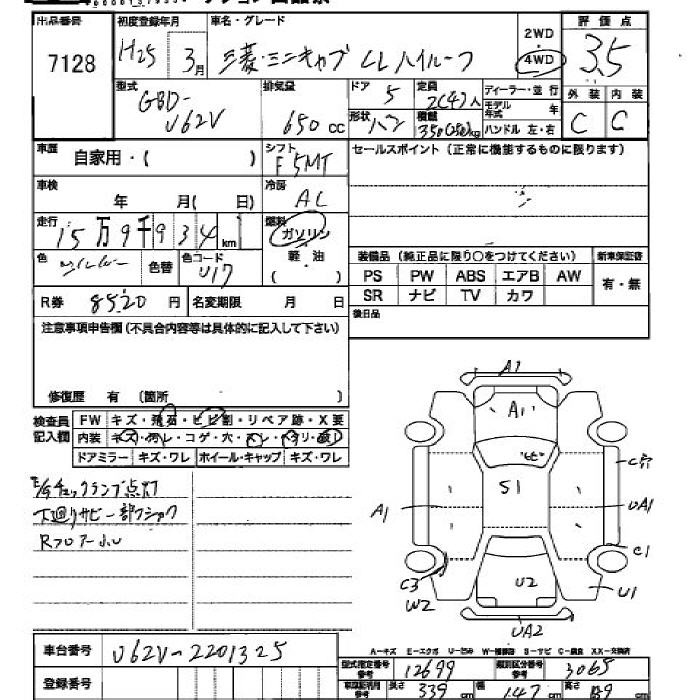 出品番号 初度登録年月 車名・グレード 評価点
7128 H25 3月 三菱・ミニキャブ CLハイルーフ 2WD 4WD 3.5
型式 GBD-U62V 排気量 650cc ドア 5 定員 2(4)人 ディーラー・並行 外装 内装
形状 バン 積載 350(250)kg モデル年式 年 ハンドル 左・右 C C
車歴 自家用・( ) シフト F5MT セールスポイント(正常に機能するものに限ります)
車検 年 月( 日) 冷房 AC
走行 15万9千934km 燃料 ガソリン 軽・油 ( )
色 シルバー 色替 色コード U17 装備品(純正品に限り○をつけてください) 新車保証書
PS PW ABS エアB AW 有・無
R券 8520円 名変期限 月 日 SR ナビ TV カワ
注意事項申告欄(不具合内容等は具体的に記入して下さい) 後日品
修復歴 有 (箇所 )
検査員記入欄 FW キズ・飛石・ヒビ割・リペア跡・X要
内装 キズ・汚レ・コゲ・穴・スレ・ヘタリ・
ドアミラー キズ・ワレ ホイール・キャップ キズ・ワレ
E/Gチェックランプ点灯
下廻りサビ一部フショク
Rフロアー小U
A1
A1
ヒビ
S1
C穴
A1 UA1
C1
C3 W2 U2 U1
UA2
A-キズ E-エクボ U-凹み W-補修跡 S-サビ C-腐食 XX-交換済
車台番号 U62V-2201325 型式指定番号 参考 12699 類別区分番号 参考 3065
登録番号 長さ 339 cm 幅 147 cm 高さ 189 cm